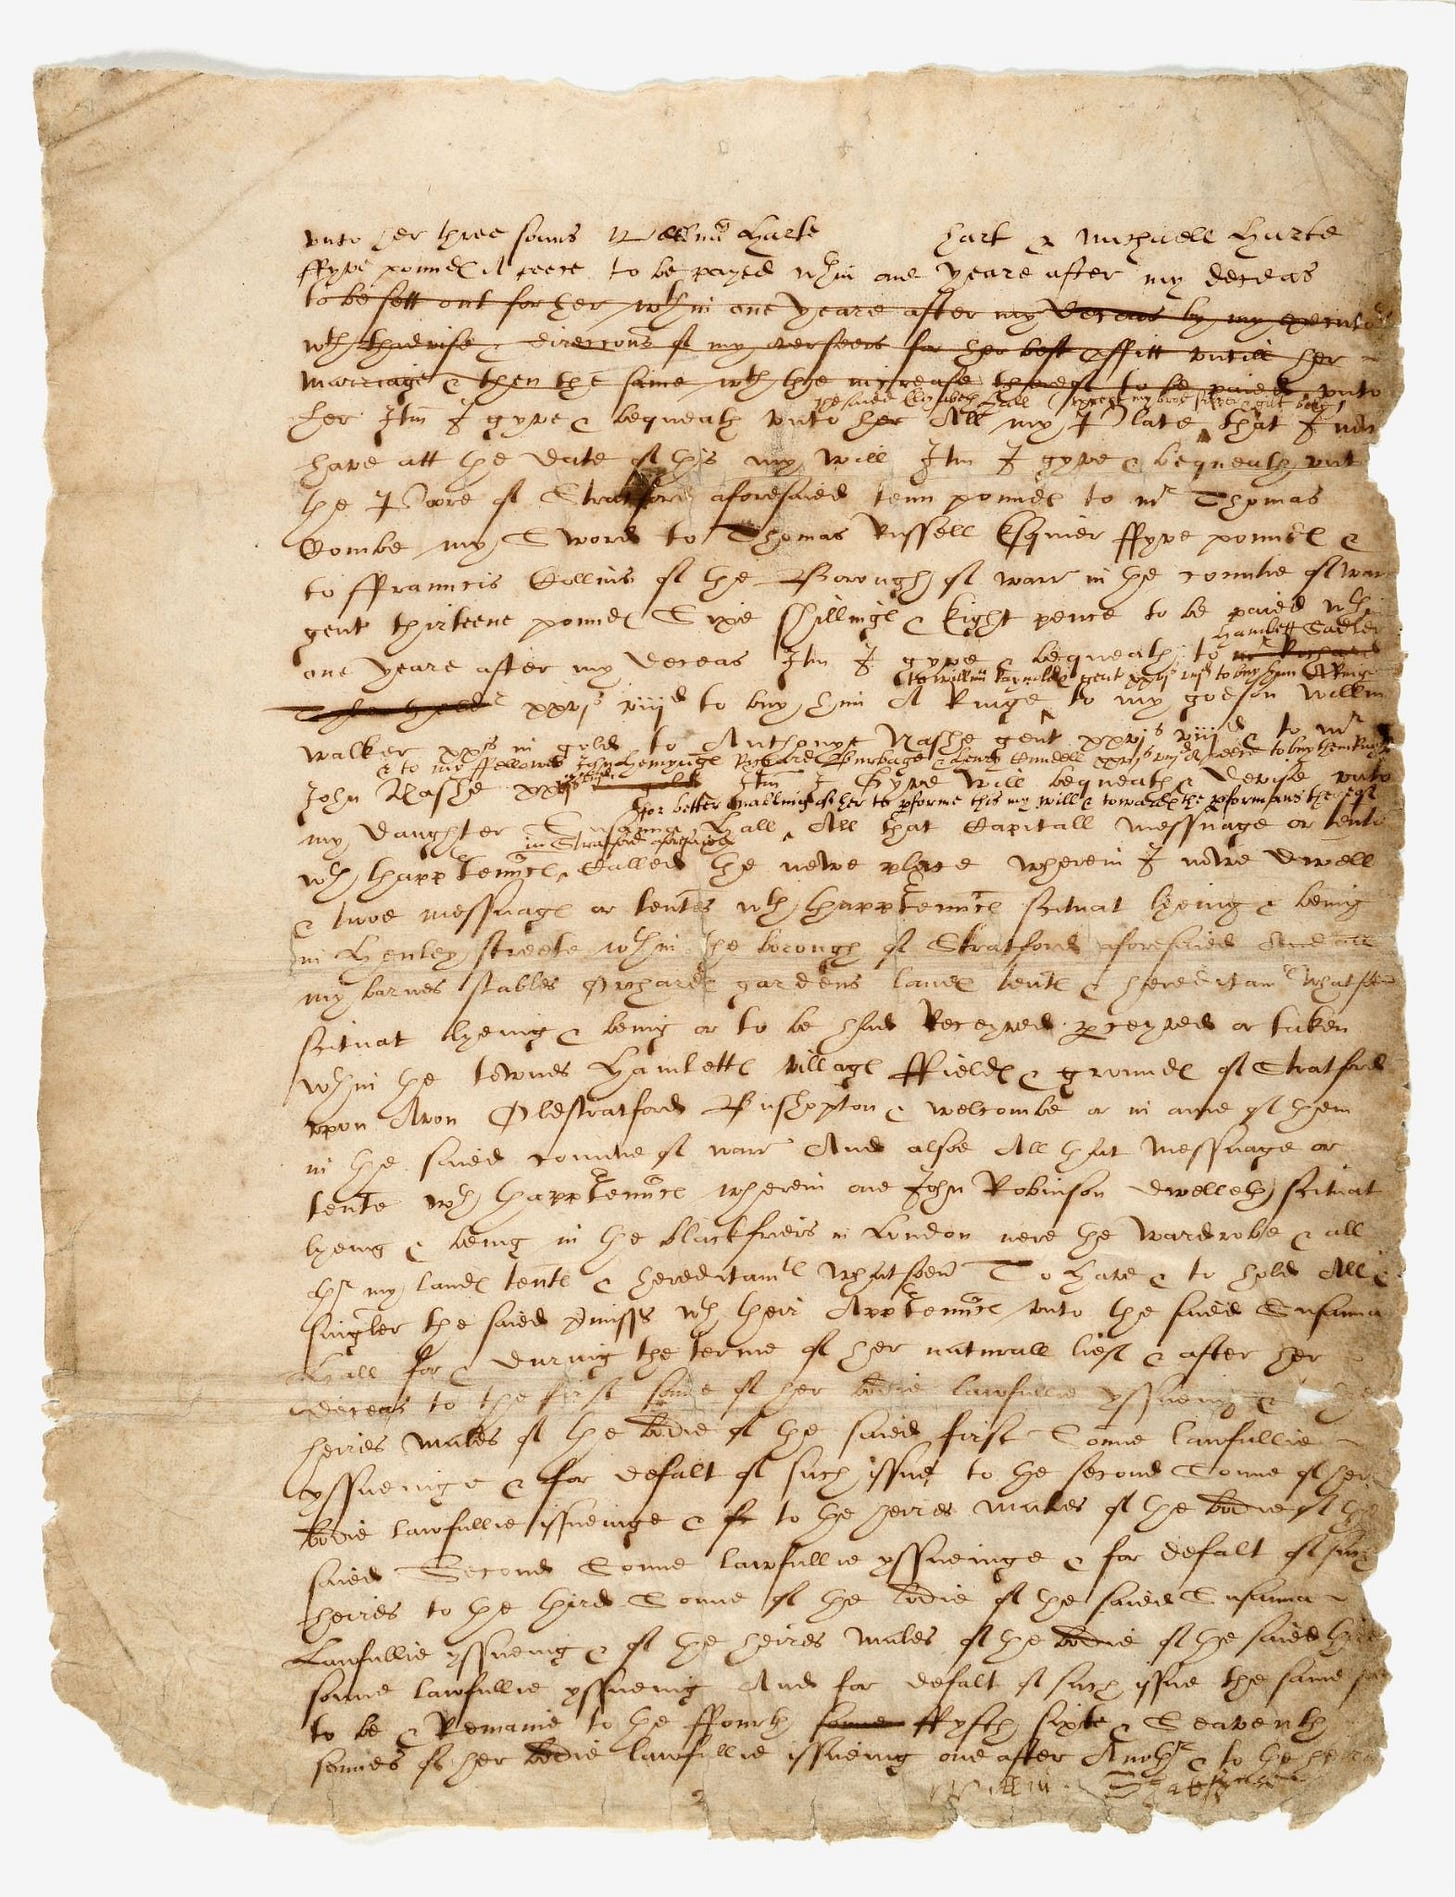 vnto her three sonns Willm Harte hart & Michaell Harte
ffyve pounds A peece to be payed wthin one yeare after my deceas
to be sett out for her wthin one yeare after my deceas by my executors
wth thadvise & direccons of my overseers for her best proffitt vntill her
marriage & then the same wth the increase thereof to be paied vnto
the saied Elizabeth Hall (except my brod silver & gilt bole)
her Itm I gyve & bequeath vnto her All my Plate that I now
have att the date of this my will Itm I gyve & bequeath vnto
the Poore of Stratford aforesaied tenn pounds to mr Thomas
Combe my Sword to Thomas Russell Esquier ffyve pounds &
to ffrauncis Collins of the Borough of warr in the countie of warr
gent thirteene pounds Sixe shillings & Eight pence to be paied wthin
Hamlett Sadler
one yeare after my deceas Itm I gyve & bequeath to mr Richard
to Willm Raynolds gent xxvjs viijd to buy him A Ringe
Tyler thelder xxvjs viijd to buy him A Ringe to my godson Willm
walker xxs in gold to Anthonye Nashe gent xxvjs viijd & to mr
& to my ffellowes John Hemynges Richard Burbage & Henry Cundell xxvjs viijd A peece to buy them Ringes
John Nashe xxvjs viijd in gold Itm I Gyve Will bequeath & Devise vnto
for better enabling of her to pforme this my will & towards the pformans thereof
my daughter Susanna Hall All that Capitall messuage or tente
in Stratford aforesaied
wth thapptennces Called the newe place wherein I nowe dwell
& twoe messuags or tentes wth thapptennces scituat lyeing & being
in Henley streete wthin the borough of Stratford aforesaied And all
my barnes stables Orchards gardens lands tents & hereditamts whatsoev
scituat lyeing & being or to be had Receyved pceyved or taken
wthin the townes Hamletts villags ffields & grounds of Stratford
vpon Avon Oldstratford Bushopton & welcombe or in anie of them
in the saied countie of warr And alsoe All that messuage or
tente wth thapptennces wherein one John Robinson dwelleth scituat
lyeing & being in the blackfriers in London nere the wardrobe & all
othr my lands tents & hereditamts whatsoev To Have & to hold All &
singler the saied pmisss wth their Apptennces vnto the saied Susanna
Hall for & during the terme of her naturall lief & after her
deceas to the first sonne of her bodie lawfullie yssueing & to the
heires Males of the bodie of the saied first Sonne lawfullie
yssueinge & for defalt of such issue to the second Sonne of her
bodie lawfullie issueinge & of to the heires Males of the bodie of the
saied Second Sonne lawfullie yssueinge & for defalt of such
heires to the third Sonne of the bodie of the saied Susanna
Lawfullie yssueing & of the heires Males of the bodie of the saied third
sonne lawfullie yssueing And for defalt of such issue the same soe
to be & Remaine to the ffourth sonne ffyfth sixte & Seaventh
sonnes of her bodie lawfullie issueing one after Anothr & to the heires
2
Willm Shakspere